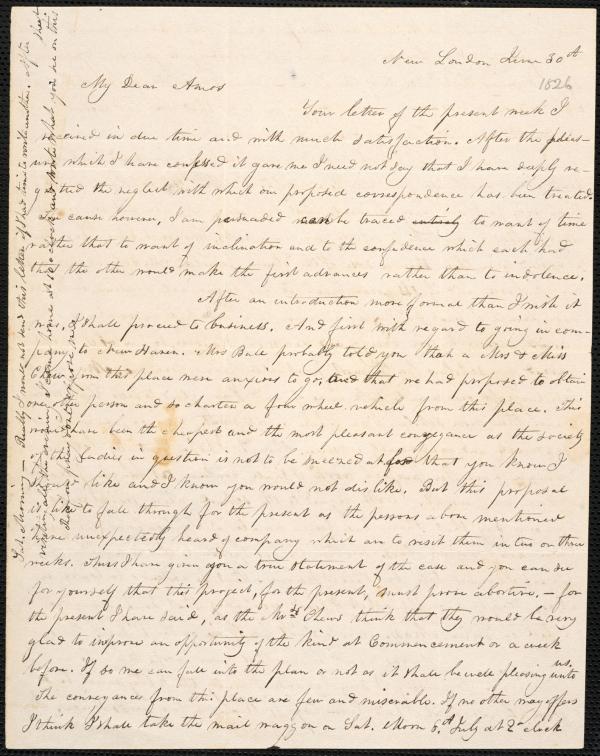 New London June 30th
1826
My Dear Amos
Your letter of the present week I
received in due time and with much satisfaction. After the pleas-
ure which I have confessed it gave me I need not say that I have deeply re-
gretted the neglect with which our proposed correspondence has been treated.
Its cause however, I am persuaded can be traced entirely to want of time
rather that to want of inclination and to the confidence which each had
that the other would make the first advances rather than to indolence.
After an introduction more formal than I wish it
was, I shall proceed to business. And first with regard to going in com-
pany to New Haven. Mrs probably told you that a Mrs & Miss
Chew from this place were anxious to go, and that we had proposed to obtain
one other person and so charter a four wheel vehicle from this place. This
would have been the cheapest and the most pleasant conveyance as the society
of the Ladies in question is not to be sneezed at for that you know I
should like and I know you would not dislike. But this proposal
is like to fall through for the present as the persons above mentioned
have unexpectedly heard of company which are to visit them in two or three
weeks. Thus I have given you a true statement of the case and you can see
for yourself that this project, for the present, must prove abortive. – for
the present I have said, as the Mrs Chews think that they would be very
glad to improve an opportunity of the kind at Commencement or a week
before. If so we can fall into the plan or not as it shall be pleasing unto us.
The conveyances from this place are few and miserable. If no other way offers
I think I shall take the mail waggon on Sat. Morn 6th July at 2 o'clock
Sat. Morning – Really I would not send this letter if I had time to write another. After